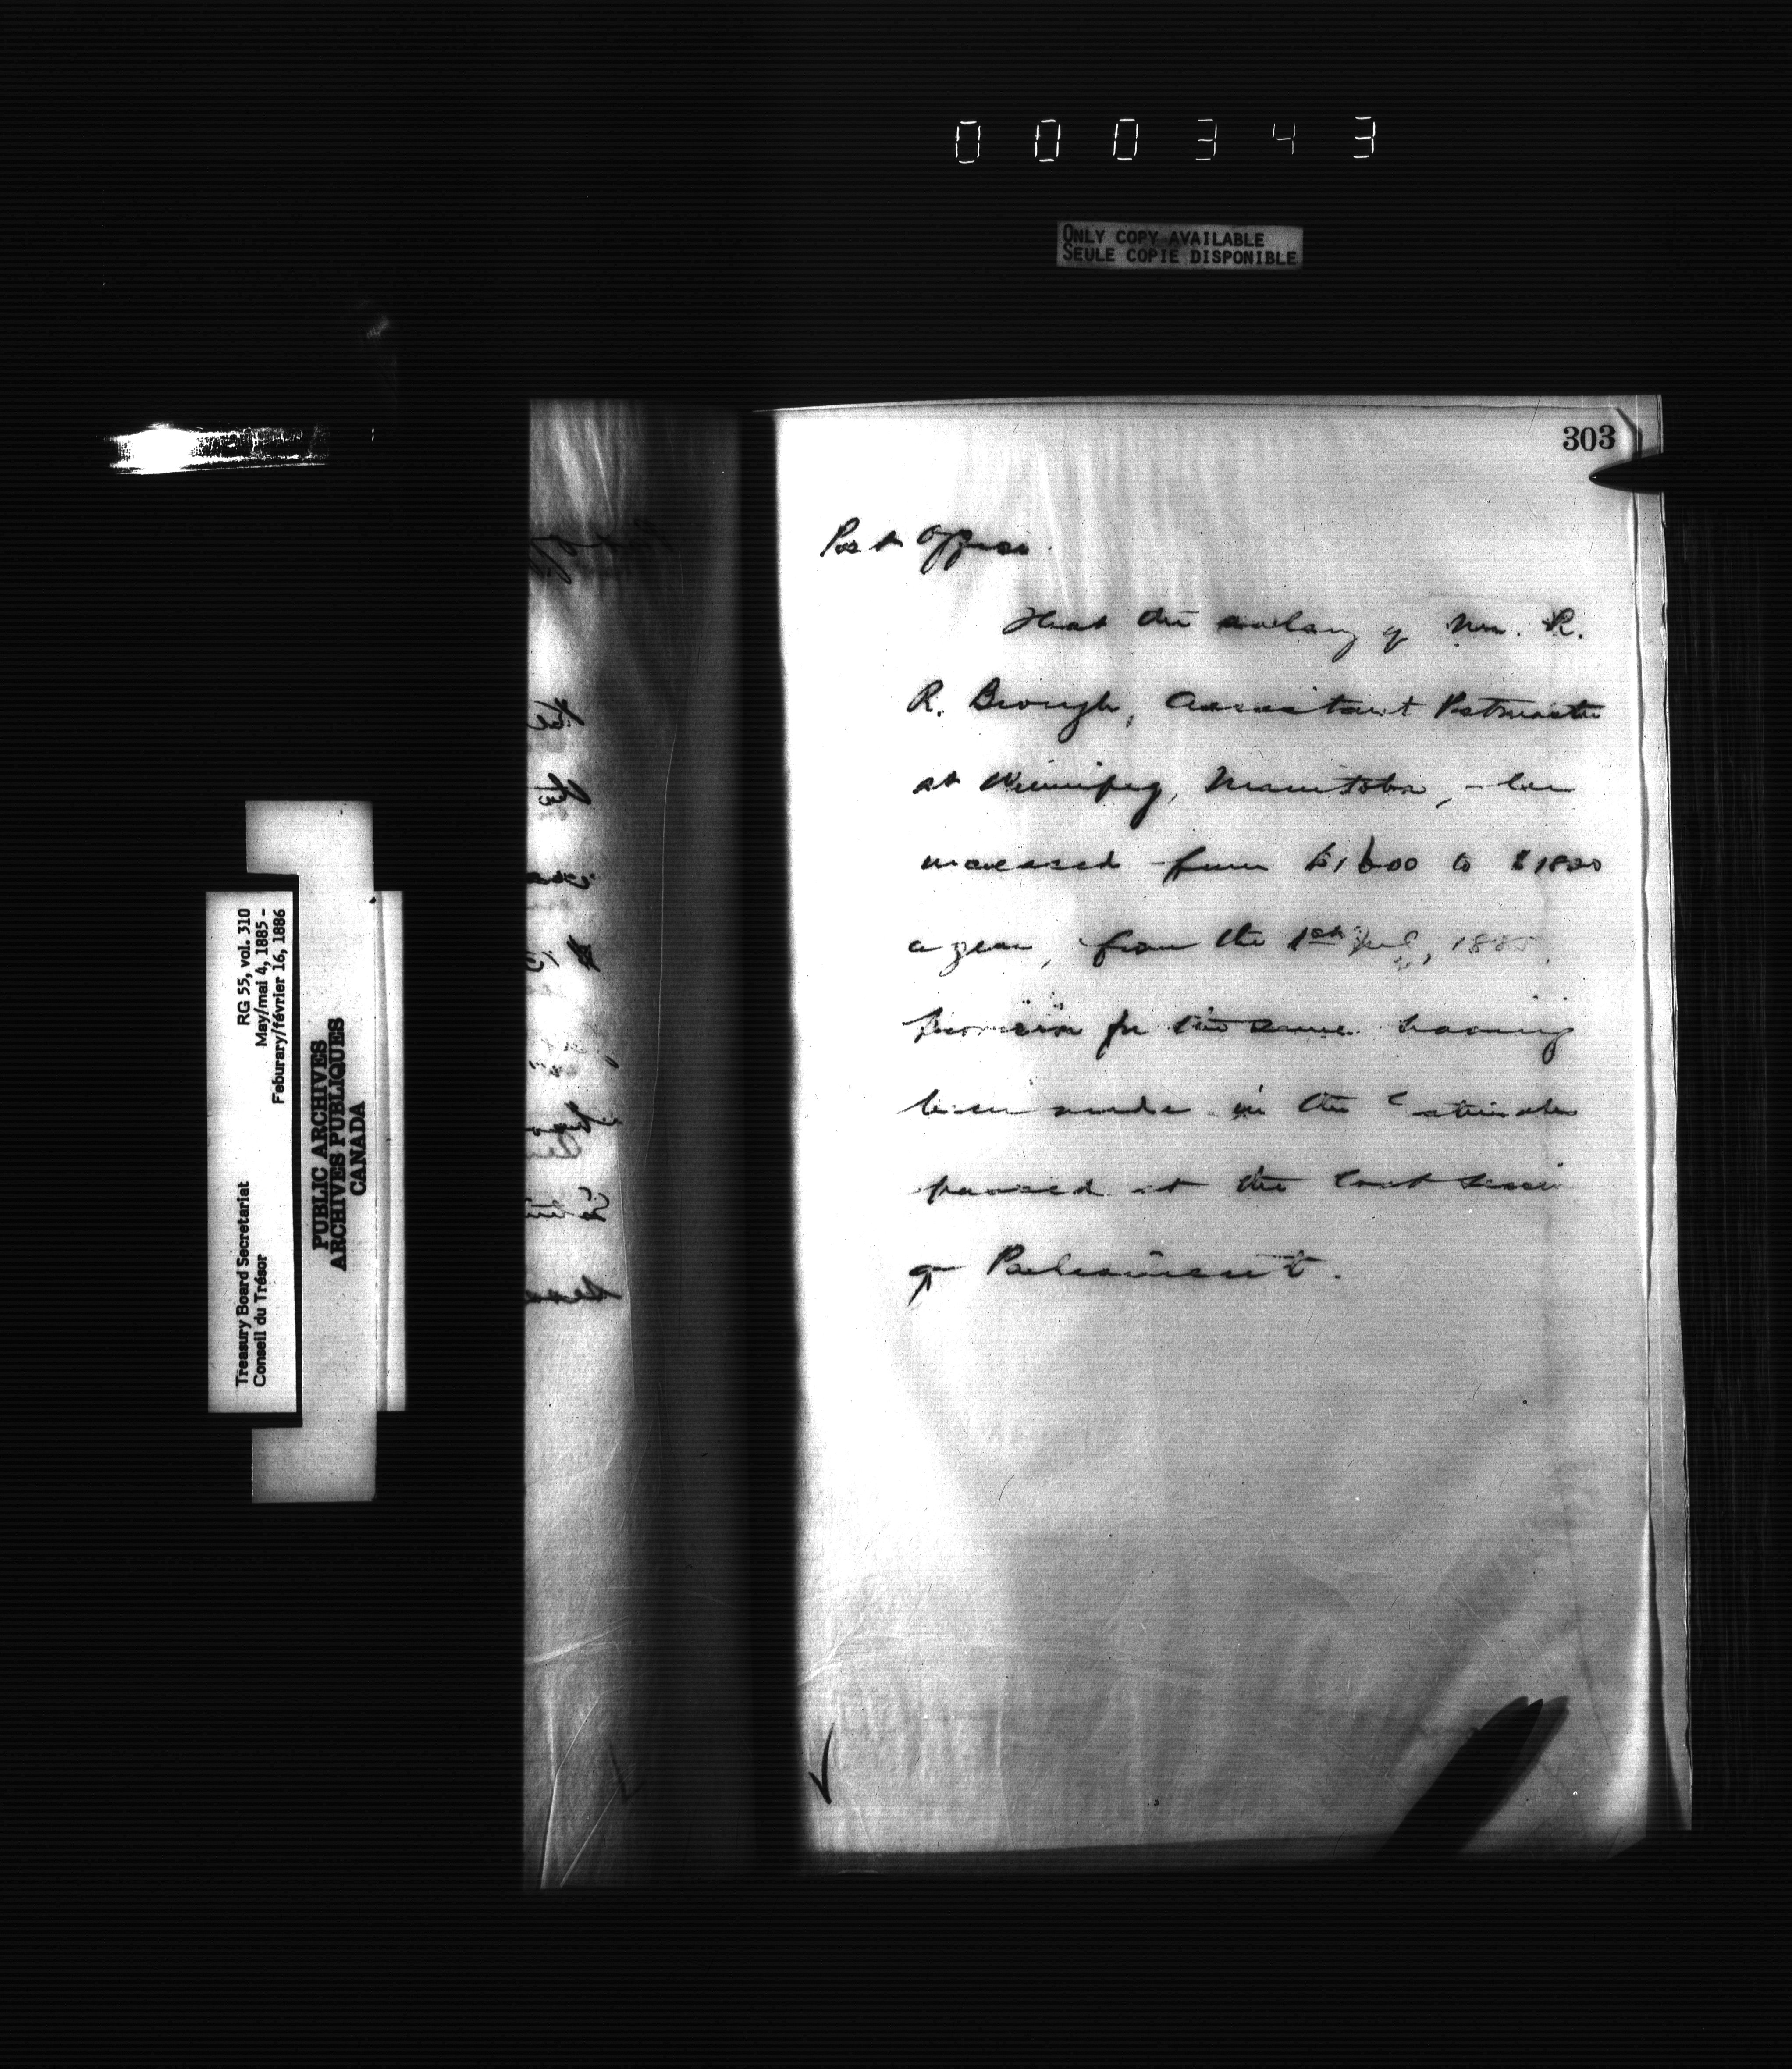 000343
ONLY COPY AVAILABLE
SEULE COPIE DISPONIBLE
303
Post Office
That the salary of Mr. R.
R. Brough, Assistant Postmaster
at Winnipeg, Manitoba, be
increased from $1600 to $1800
a year, from the 1st July, 1885,
provision for the same having
been made in the Estimates
passed at the last Session
of Parliament.
Treasury Board Secretariat
Conseil du Trésor
RG 55, vol. 310
May/mai 4, 1885 -
Feburary/février 16, 1886
PUBLIC ARCHIVES
ARCHIVES PUBLIQUES
CANADA